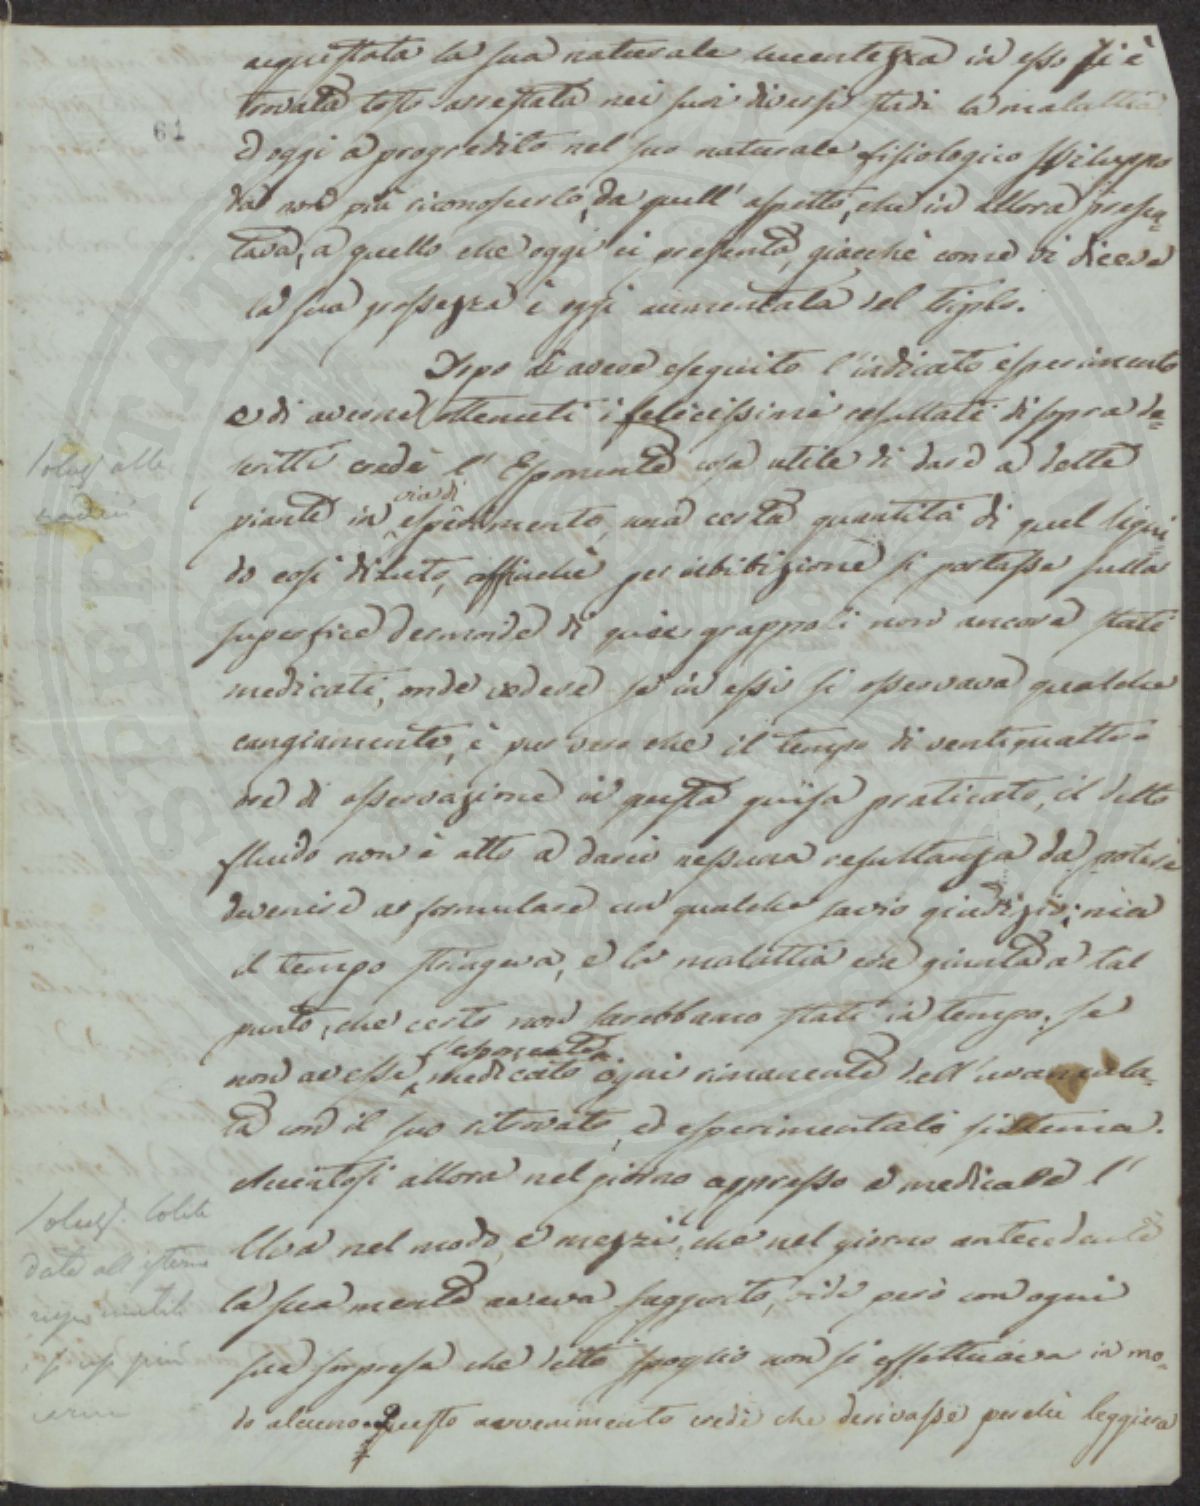 acquistata la sua naturale lucentezza in esso si è
trovata tosto arrestata nei suoi diversi stadi la malattia
61
ed oggi à progredito nel suo naturale fisiologico sviluppo
da non più riconoscerlo, da quell' aspetto, che in allora presen=
tava, a quello che oggi ci presenta, giacchè come vi diceva
la sua grossezza è oggi aumentata del triplo.
Dopo di avere eseguito l'indicato esperimento
e di averne ottenuti i felicissimi resultati di sopra de=
scritti credè l' Esponente cosa utile di dare a dette
via di
piante in esperimento, una certa quantità di quel liqui=
do così diluto, affinchè per imbibizione si portasse sulla
superfice dermoide di quei grappoli non ancora stati
medicati, onde vedere se in essi si osservava qualche
cangiamento, è pur vero che il tempo di ventiquattro
ore di osservazione in questa guisa praticato, il detto
fluido non è atto a darci nessuna resultanza da potere
devenire a formulare un qualche savio giudizio; mia
il tempo stringeva, e la malattia era giunta a tal
punto, che certo non sarebbamo stati in tempo, se
l'esponente
non avesse medicato ogni rimanente dell'uva mala=
ta con il suo ritrovato, ed esperimentato sistema.
Accintosi allora nel giorno appresso a medicare l'
Uva nel modo, e mezzi, che nel giorno antecedente
la sua mente aveva suggerito, vide però con ogni
sua sorpresa che detto spoglio non si effettuava in mo=
do alcuno. Questo avvenimento credè che derivasse perchè leggiera
Soluz alle
radici
Soluz.
date all esterno